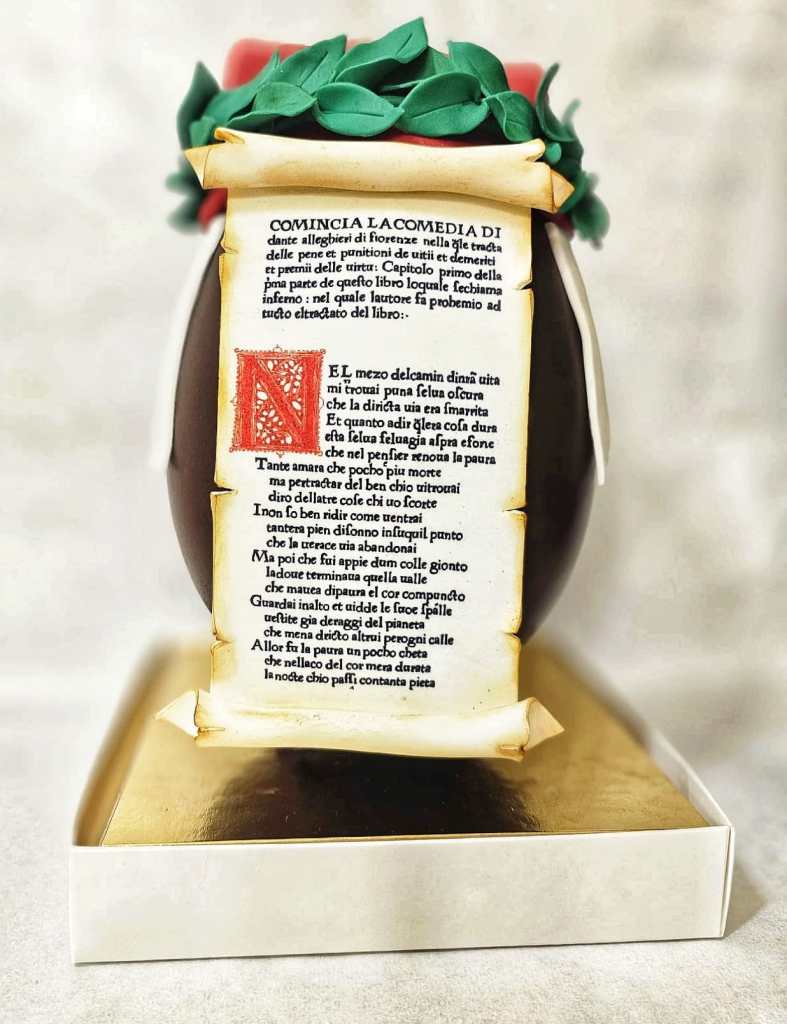 COMINCIA LACOMEDIA DI
dante alleghieri di fiorenze nella q̃le tracta
delle pene et punitioni de uitii et demeriti
et premii delle uirtu: Capitolo primo della
p̃ma parte de queſto libro loquale ſechiama
inferno : nel quale lautore fa probemio ad
tucto eltractato del libro:·
NEL mezo delcamin dinr̃a uita
mi t̃rouai puna ſelua oſcura
che la diricta uia era ſmarrita
Et quanto adir q̃lera coſa dura
eſta ſelua ſeluagia aſpra eforte
che nel penſier renoua la paura
Tante amara che pocho piu morte
ma pertractar del ben chio uitrouai
diro dellatre coſe chi uo ſcorte
Inon ſo ben ridir come uentrai
tantera pien diſonno inſuquil punto
che la uerace uia abandonai
Ma poi che fui appie dum colle gionto
ladoue terminaua quella ualle
che mauea dipaura el cor compuncto
Guardai inalto et uidde le ſuoe ſpalle
ueſtite gia deraggi del pianeta
che mena dricto altrui perogni calle
Allor fu la paura un pocho cheta
che nellaco del cor mera durata
la nocte chio paſſi contanta pieta